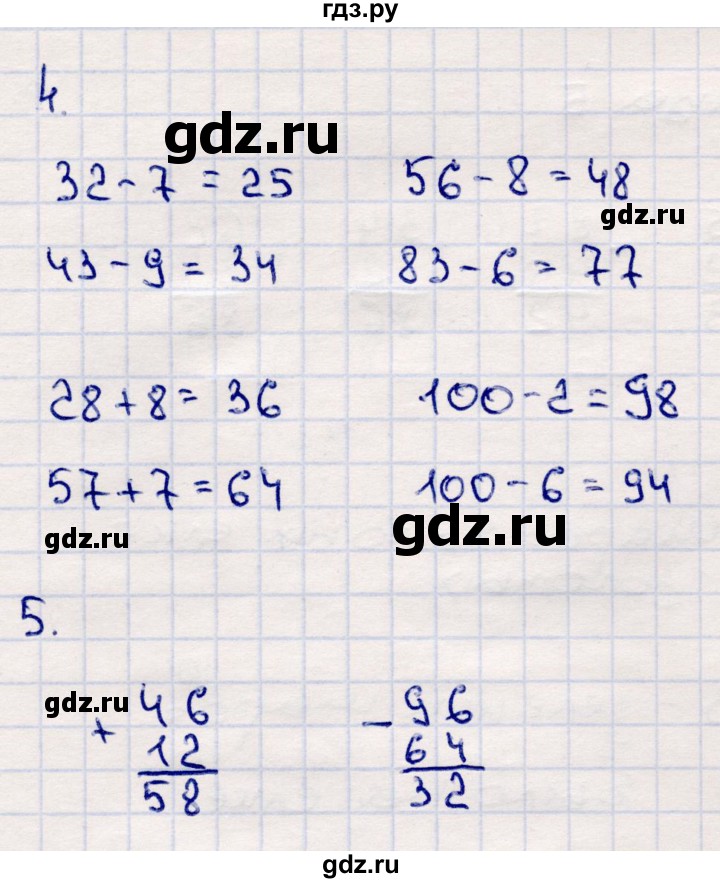 гдз.ру
4.
gdz.ru
32 - 7 = 25 56 - 8 = 48
gdz.ru
43 - 9 = 34 83 - 6 = 77
28 + 8 = 36 100 - 2 = 98
57 + 7 = 64 100 - 6 = 94
gdz.ru gdz.ru
5.
gdz.ru
+ 46 - 96
12 64
58 32
gdz.ru